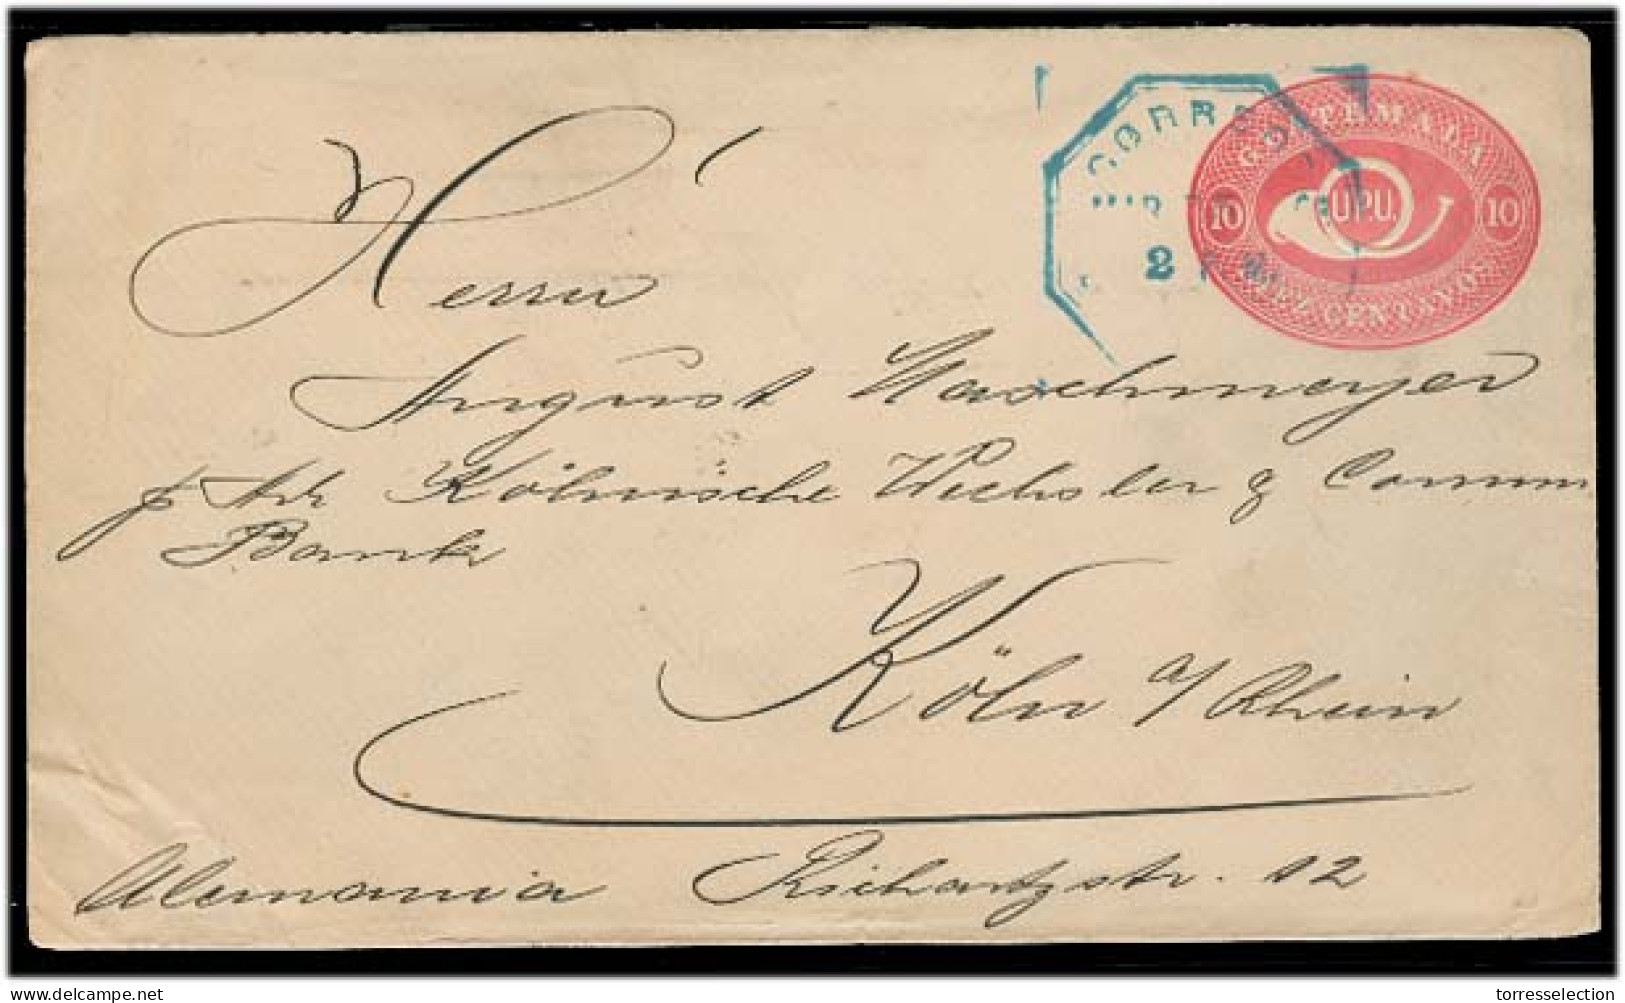 CORREO
GUATEMALA
10 U.P.U. 10
DIEZ CENTAVOS
2
Herrn
August Maschmeyer
p. Adr Kölnische Wechsler & Comm
Bank
Köln a/ Rhein
Alemania Richartzstr. 12
torresselection